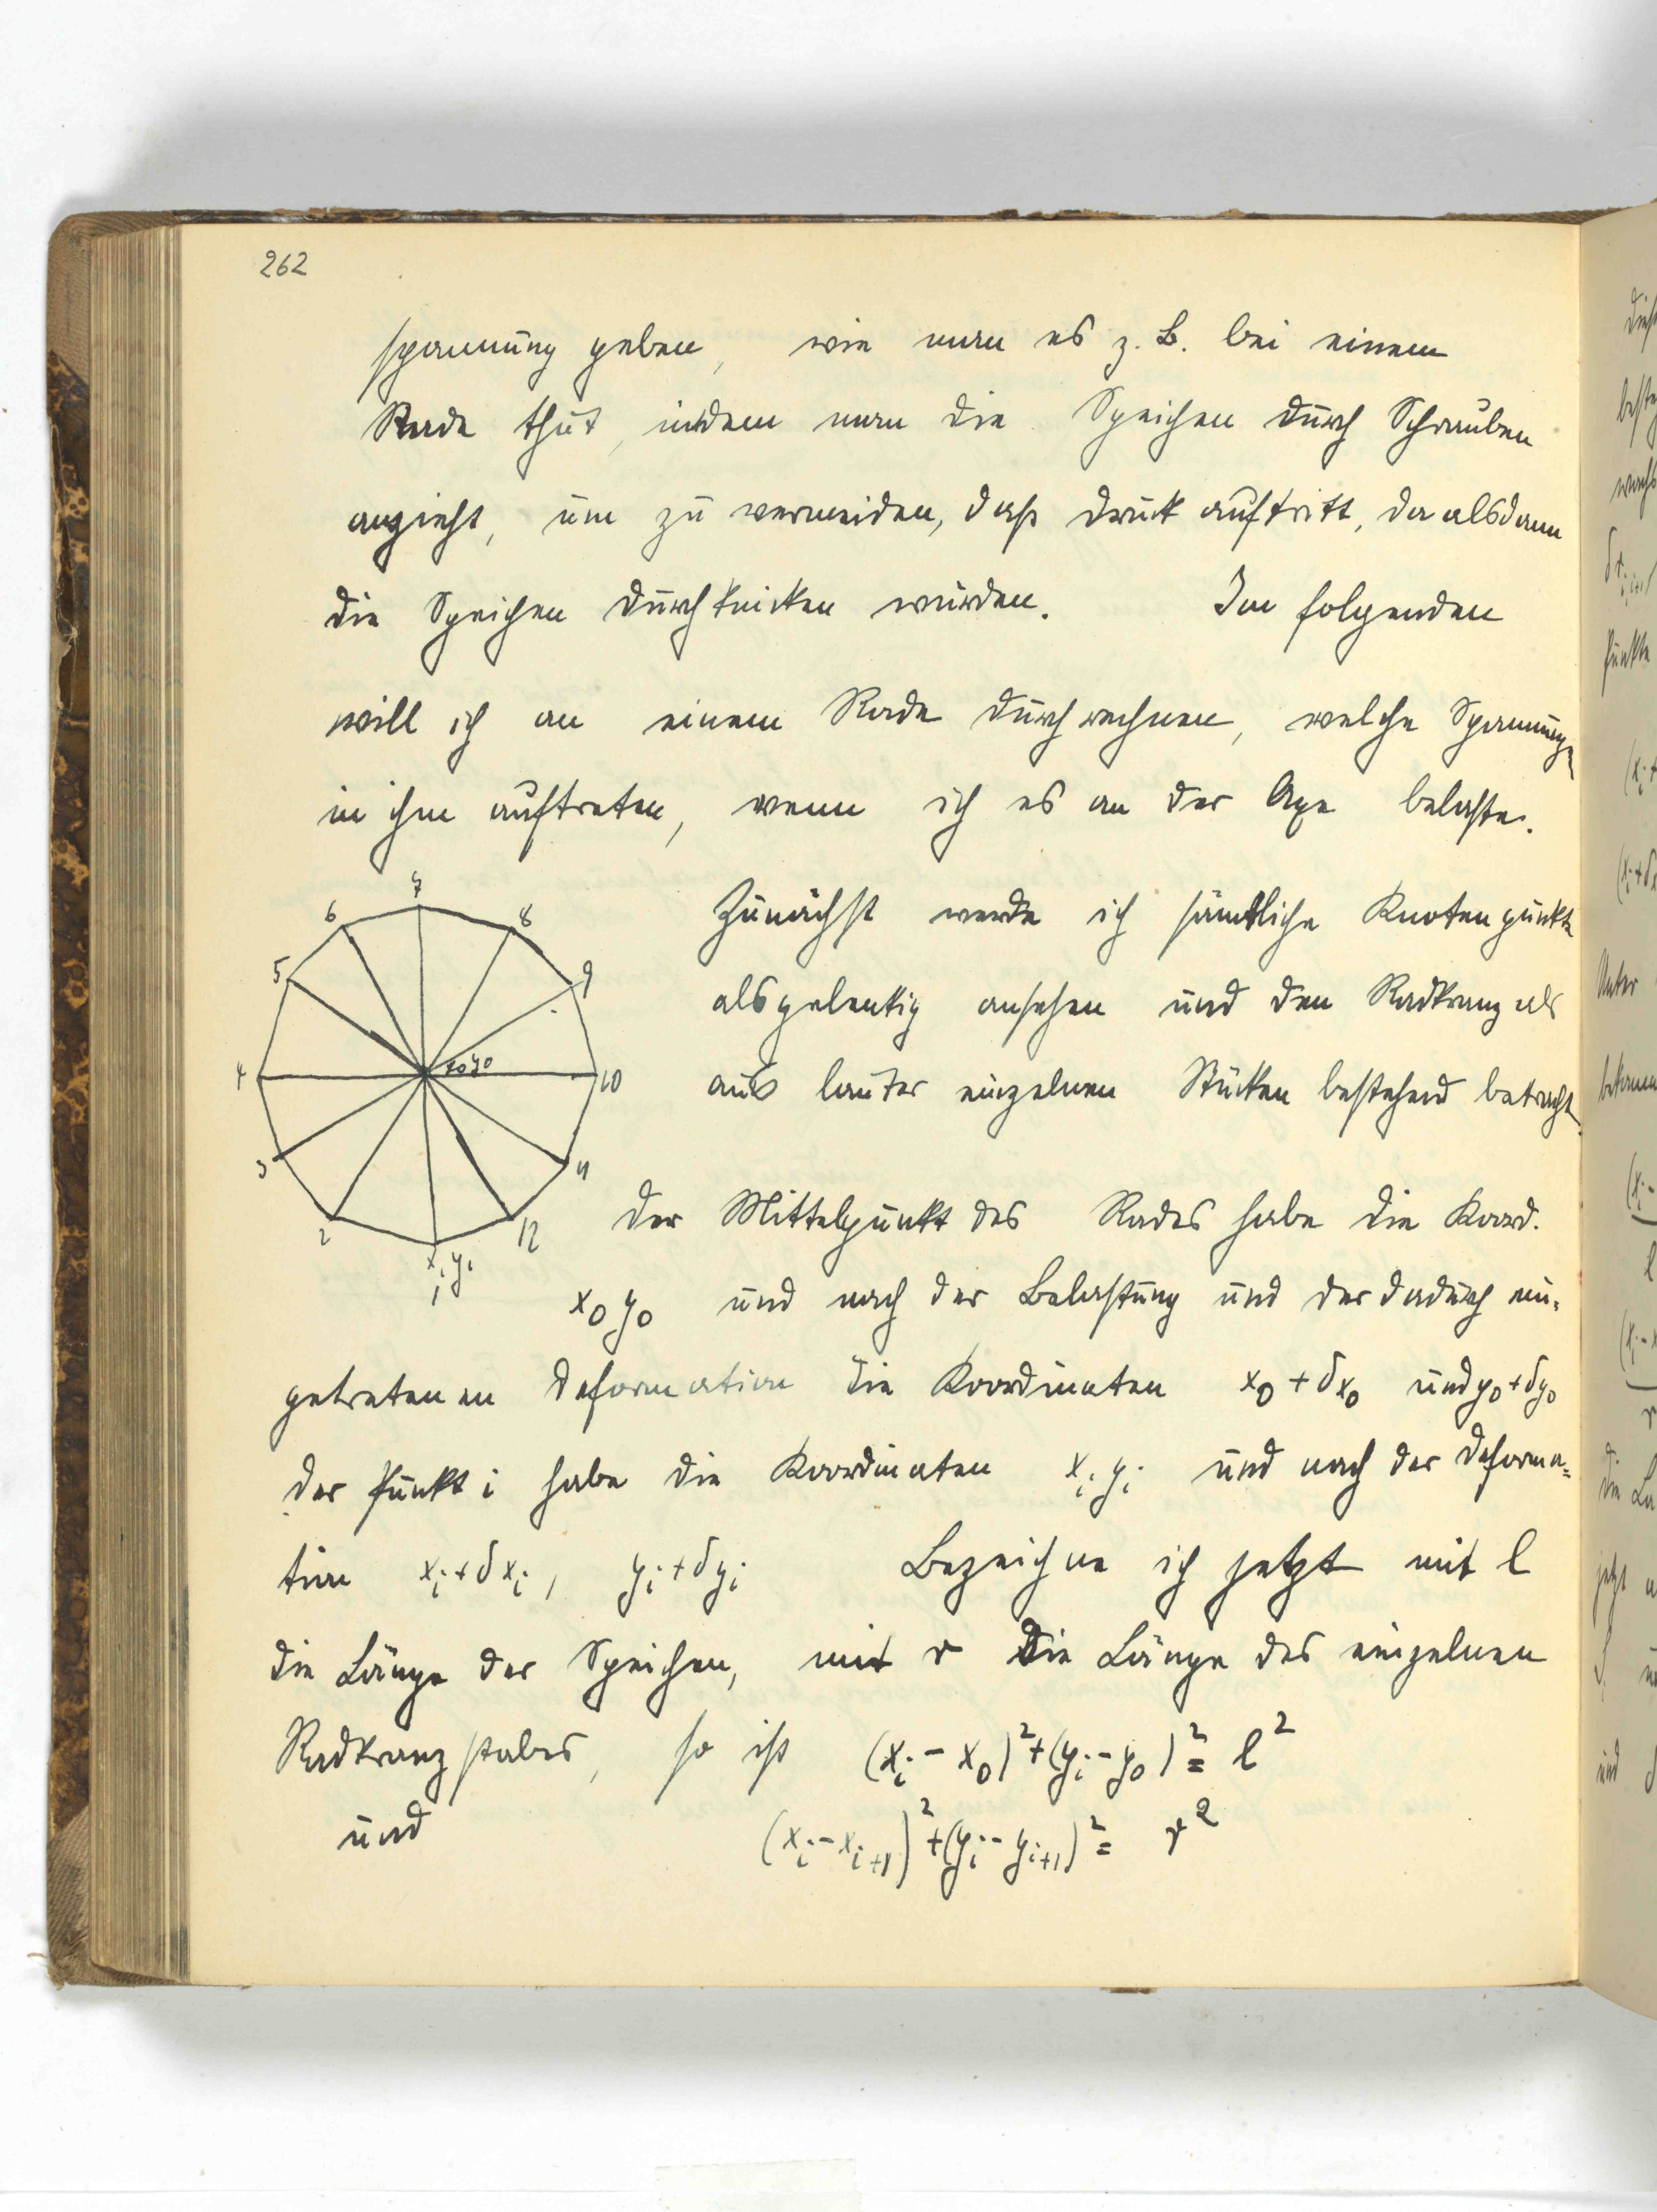 262
spannung geben, wie man es z. B. bei einem
Rade thut, indem man die Speichen durch Schrauben
anzieht, um zu vermeiden, daß Druck auftritt, da alsdann
die Speichen durchknicken würden. Im folgenden
will ich an einem Rade durchrechnen, welche Spannungen
in ihm auftreten, wenn ich es an der Axe belaste.
7
6
8
5
9
4
x₀y₀
10
3
11
2
12
xᵢyᵢ
1
Zunächst werde ich sämtliche Knotenpunkte
als gelenkig ansehen und den Radkranz als
aus lauter einzelnen Stücken bestehend betracht
Der Mittelpunkt des Rades habe die Koord.
x₀ y₀ und nach der Belastung und der dadurch ein-
getretenen Deformation die Koordinaten x₀ + δx₀ und y₀ + δy₀
Der Punkt i habe die Koordinaten xᵢ yᵢ und nach der Deforma=
tion xᵢ + δxᵢ, yᵢ + δyᵢ Bezeichne ich jetzt mit l
die Länge der Speichen, mit r die Länge des einzelnen
Radkranzstabes, so ist (xᵢ - x₀)² + (yᵢ - y₀)² = l²
und (xᵢ - xᵢ₊₁)² + (yᵢ - yᵢ₊₁)² = r²